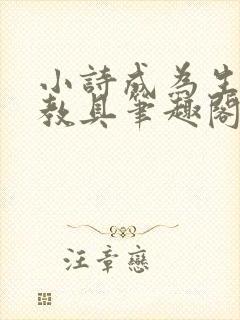 小詩成為生
教具筆趣閣
汪章戀